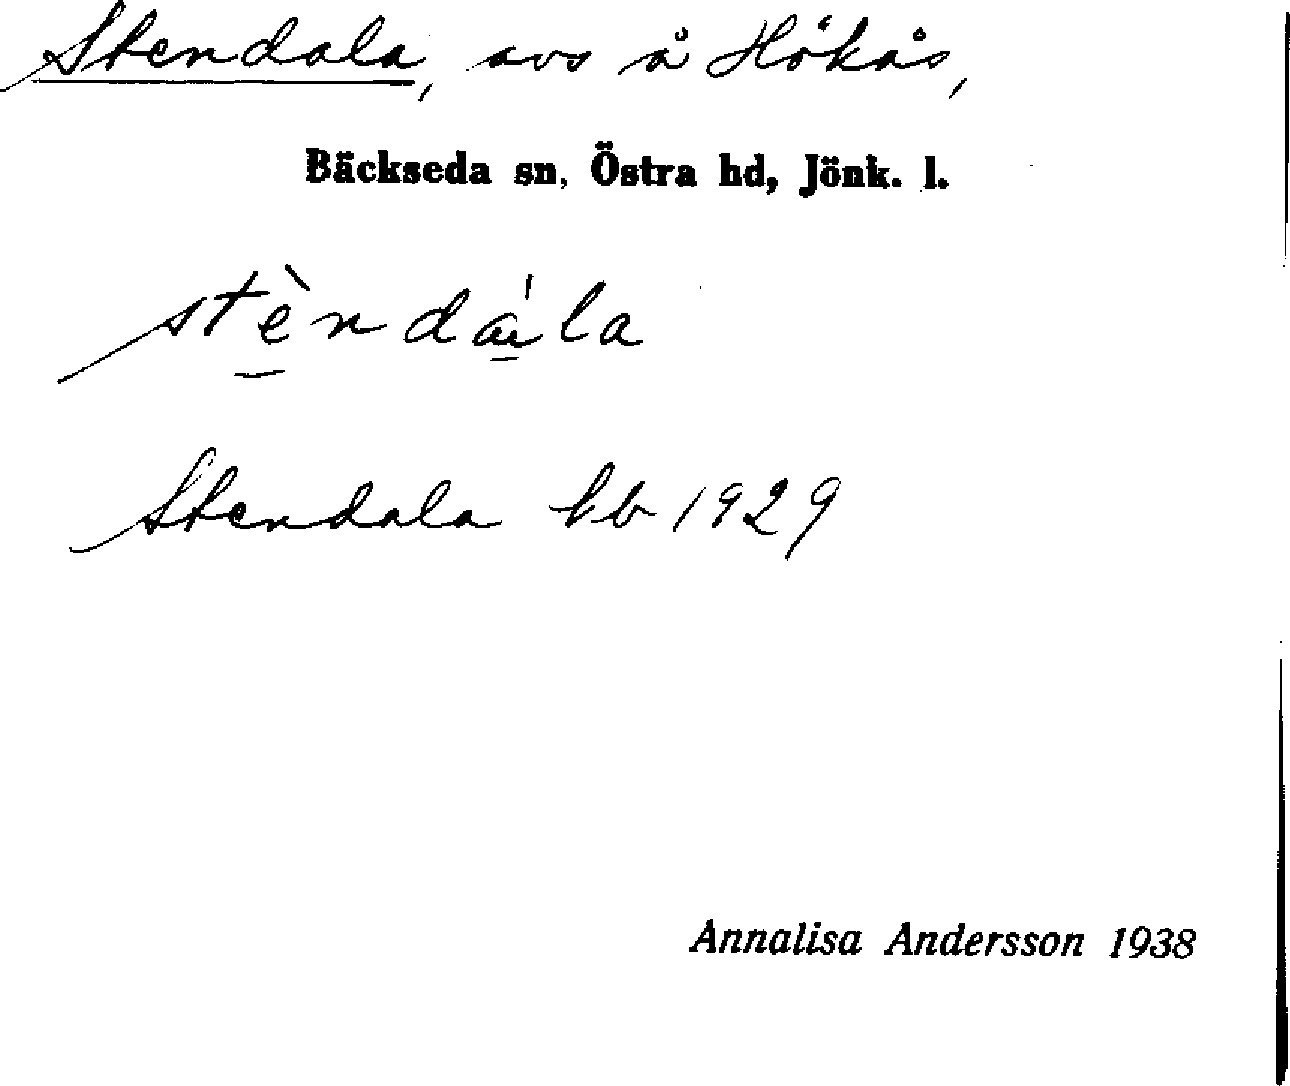 Stendala, avs å Hökås,
Bäckseda sn, Östra hd, Jönk. l.
stèndála
Stendala kb 1929
Annalisa Andersson 1938